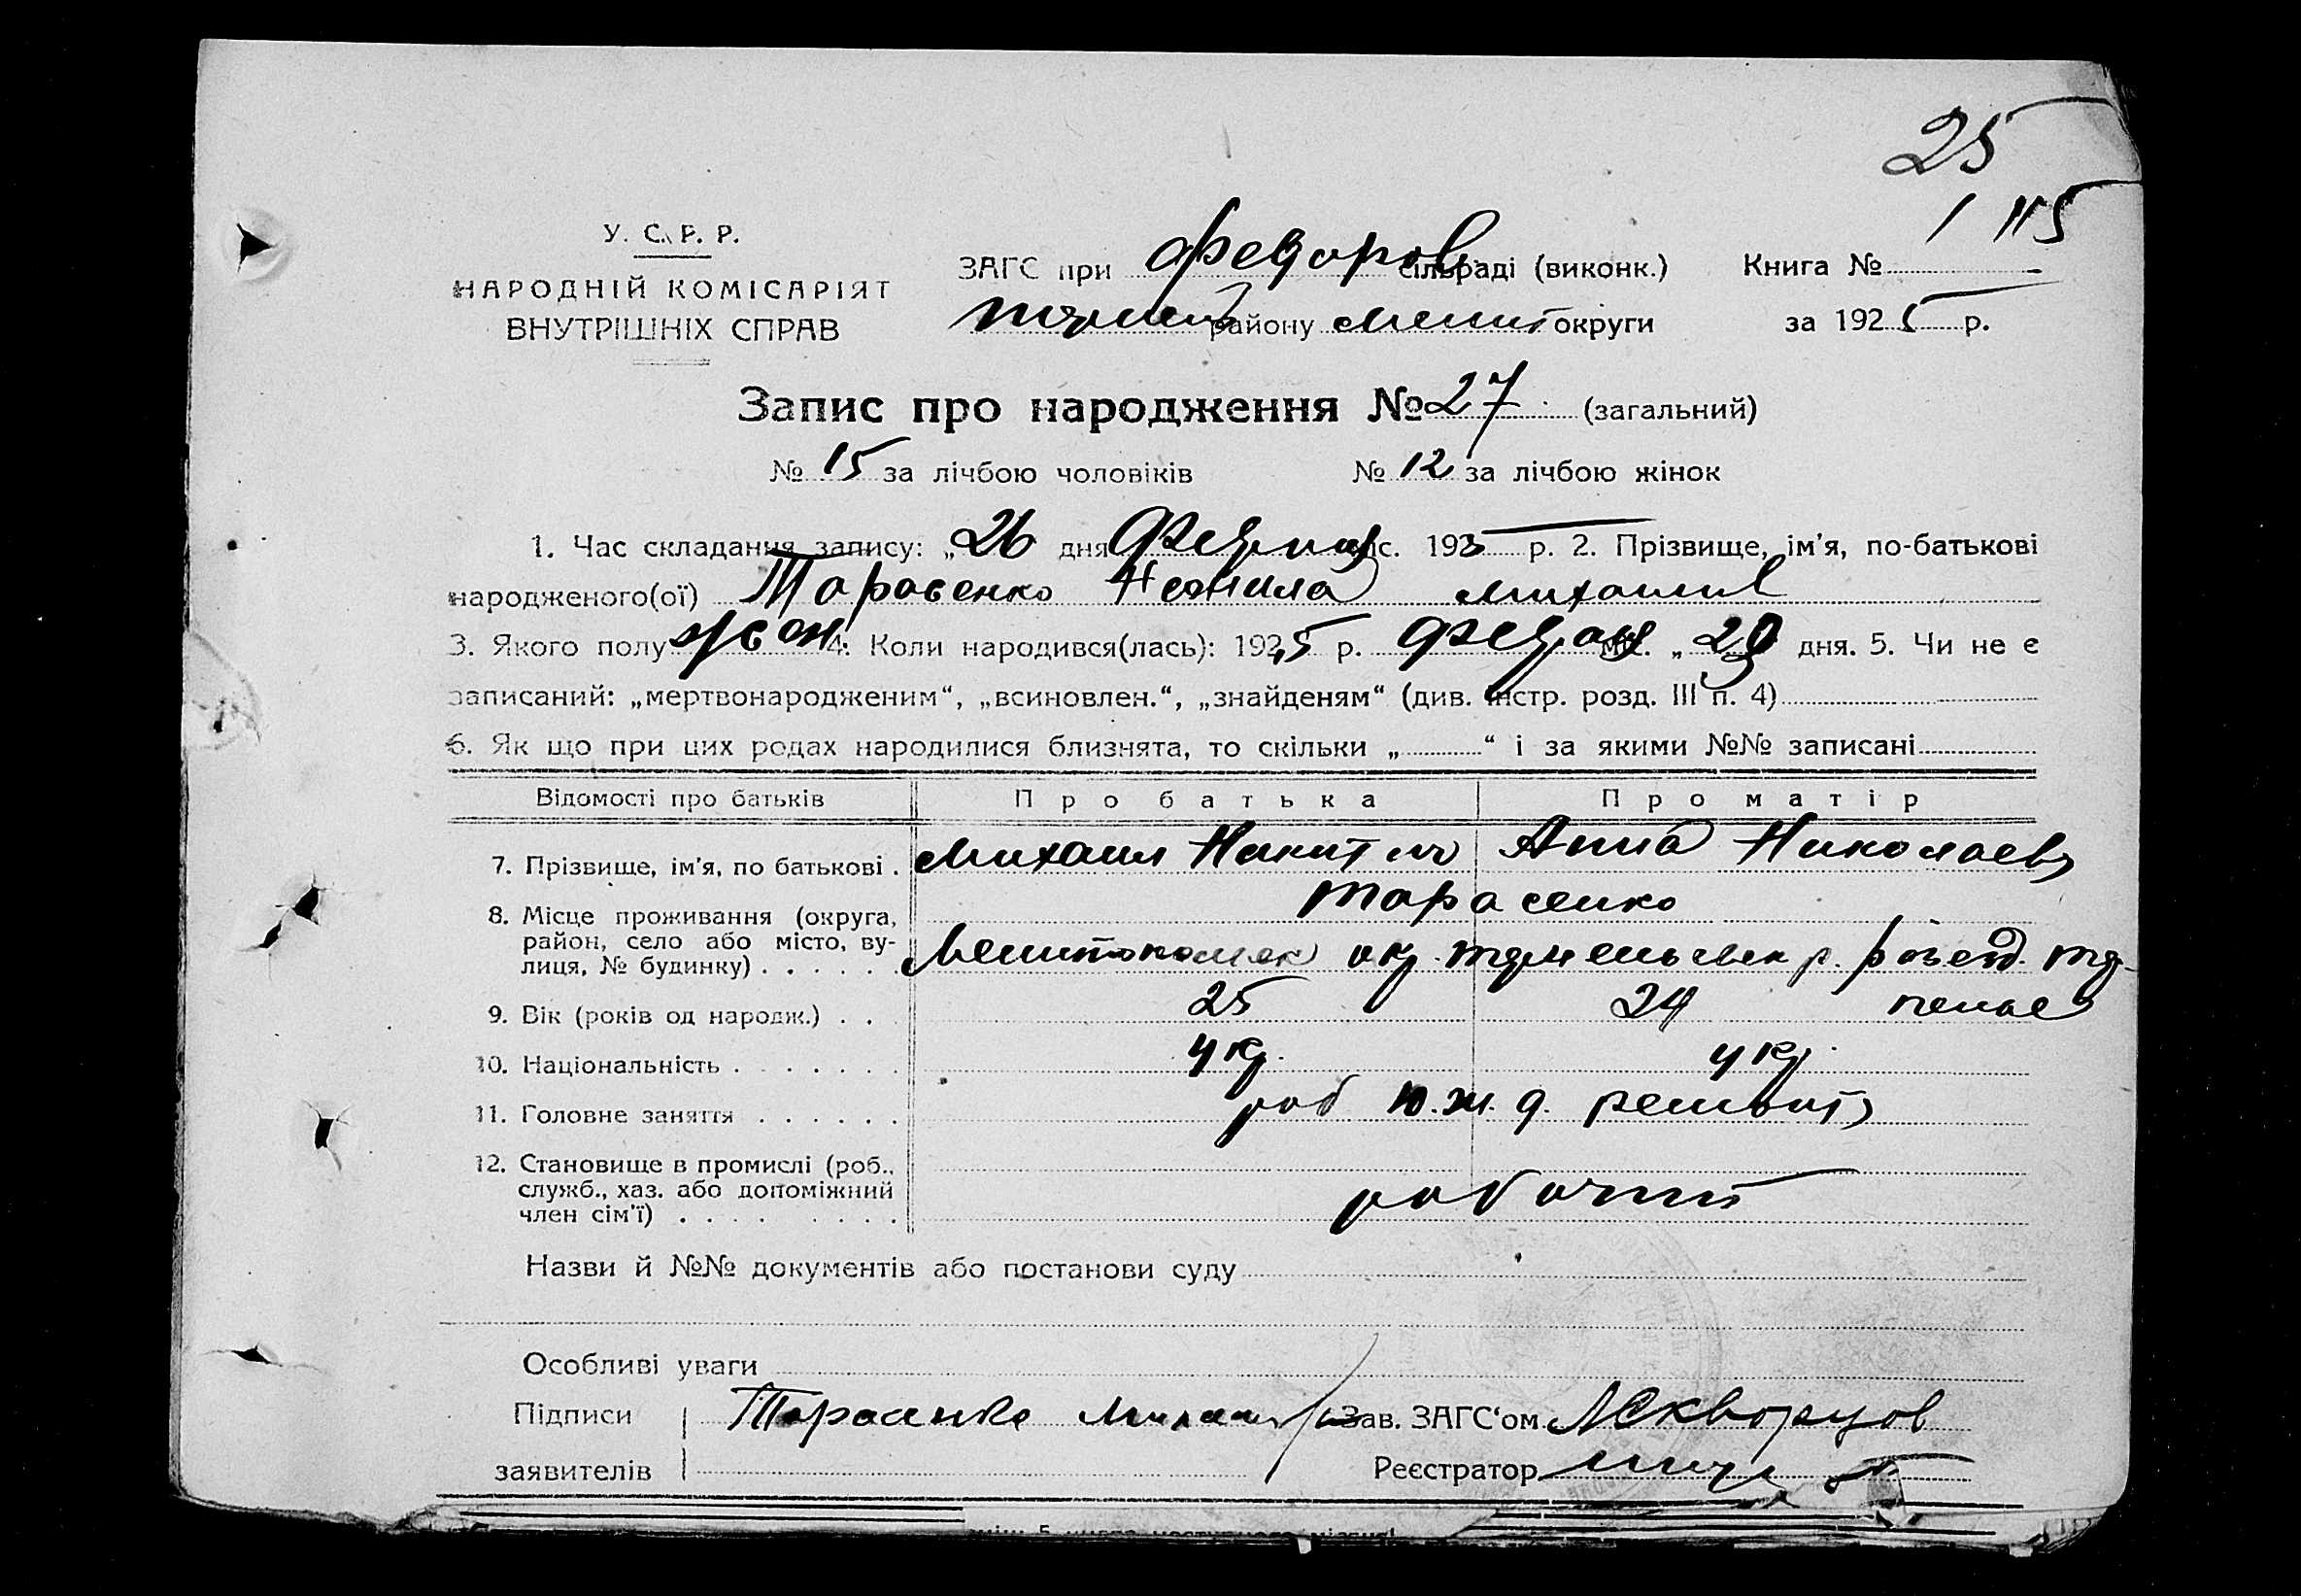 25
1 115
У. С. Р. Р.
НАРОДНІЙ КОМІСАРІЯТ
ВНУТРІШНІХ СПРАВ
ЗАГС при Федоров сільраді (виконк.) Книга №
району Мелит округи за 1925 р.
Запис про народження № 27 (загальний)
№ 15 за лічбою чоловіків № 12 за лічбою жінок
1. Час складання запису: „26 дня міс. 1925 р. 2. Прізвище, ім'я, по-батькові
народженого(ої) Тарасенко Неонила Михаил
3. Якого полу жен. 4. Коли народився(лась): 1925 р. міс. „ дня. 5. Чи не є
записаний: „мертвонародженим“, „всиновлен.“, „знайденям“ (див. інстр. розд. III п. 4)
6. Як що при цих родах народилися близнята, то скільки „ “ і за якими №№ записані
Відомості про батьків Про батька Про матір
7. Прізвище, ім'я, по батькові . Михаил Никит Анна Николаев
Тарасенко
8. Місце проживання (округа,
район, село або місто, ву-
лиця, № будинку) . . . . . . окр. р. разъезд.
9. Вік (років од народж.) . . . 25 24
10. Національність . . . . . . . укр. укр.
11. Головне заняття . . . . . . раб Ю.ж.д. ремонта
12. Становище в промислі (роб.,
служб., хаз. або допоміжний
член сім'ї) . . . . . . . . рабочий
Назви й №№ документів або постанови суду
Особливі уваги
Підписи Тарасенко Михаил Зав. ЗАГС'ом Скворцов
заявителів Реєстратор